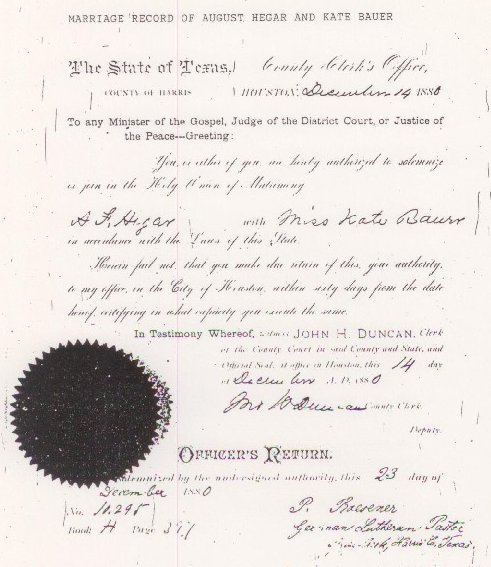 MARRIAGE RECORD OF AUGUST HEGAR AND KATE BAUER
The State of Texas, County Clerk's Office,
COUNTY OF HARRIS HOUSTON, December 14 1880
To any Minister of the Gospel, Judge of the District Court, or Justice of
the Peace---Greeting:
You, or either of you, are hereby authorized to solemnize
or join in the Holy Union of Matrimony
A F Hegar with Miss Kate Bauer
in accordance with the Laws of this State.
Herein fail not, that you make due return of this, your authority,
to my office, in the City of Houston, within sixty days from the date
hereof, certifying in what capacity you execute the same.
In Testimony Whereof, witness JOHN H. DUNCAN, Clerk
of the County Court in said County and State, and
Official Seal, at office in Houston, this 14 day
of December A. D. 1880
Jno H Duncan County Clerk
Deputy.
OFFICER'S RETURN.
Solemnized by the undersigned authority, this 23 day of
December 1880
No. 10.295 P. Roesener
Book H Page German Lutheran Pastor
Harris Co, Texas.